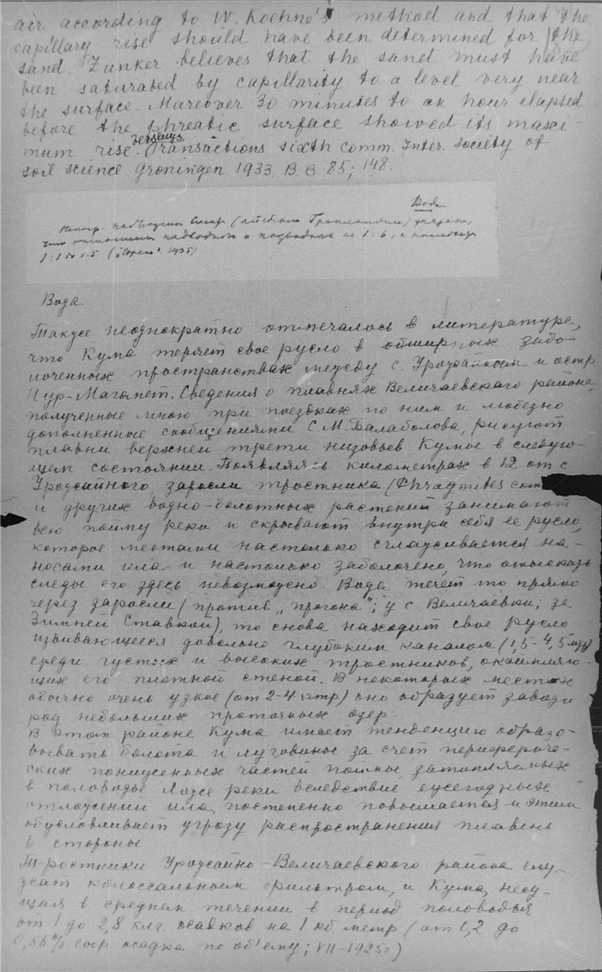 air according to W. Koehne's method and that the
capillary rise should have been determined for the
sand. Zunker believes that the sand must have
been saturated by capillarity to a level very near
the surface. Mareover 30 minutes to an hour elapsed
before the phreatic surface showed its maxi-
mum rise. (Transactions sixth comm. Inter. Society of
soil science Groningen 1933. B.B. 85; 148.
Вода
1:1 до 1:5 1935)
Вода
Также неоднократно отмечалось в литературе,
что Кума теряет свое русло в обширных забо-
лоченных пространствах между с. Урожайным и
Нур-Магомет. Сведения о плавнях Величаевского района,
полученные мною при поездках по ним и любезно
дополненные сообщениями С.М. Балаболова, рисуют
плавни верхней трети низовьев Кумы в следую-
щем состоянии. Появляясь километрах в 12 от с
Урожайного заросли тростника (Phragmites com
и других водно-болотных растений занимают
всю пойму реки и скрывают внутри себя ее русло,
которое местами настолько сглаживается на-
носами ила и настолько заболочено, что отыскать
следы его здесь невозможно. Вода течет то прямо
через заросли (против „прогона"; у с Величаевки, за
Зимней Ставкой), то снова находит свое русло
извивающееся довольно глубоким каналом (1,5-4,5
среди густых и высоких тростников, окаймляю-
щих его плотной стеной. В некоторых местах
обычно очень узкое (от 2-4 мтр) оно образует заводи
ряд небольших проточных озер.
В этом районе Кума имеет тенденцию образо-
вывать болота и луговины за счет перифериче-
ских пониженных частей поймы, затопляемых
в половодье Ложе реки вследствие ежегодных
отложений ила, постепенно повышается и этим
обусловливает угрозу распространения плавень
в стороны
Тростники Урожайно-Величаевского района слу-
жат колоссальным фильтром, и Кума, несу-
щая в среднем течении в период половодья
от 1 до 2,8 клг. осадков на 1 кб. метр (от 0,2 до
0,56% осадка по об'ему; VII-1925г)